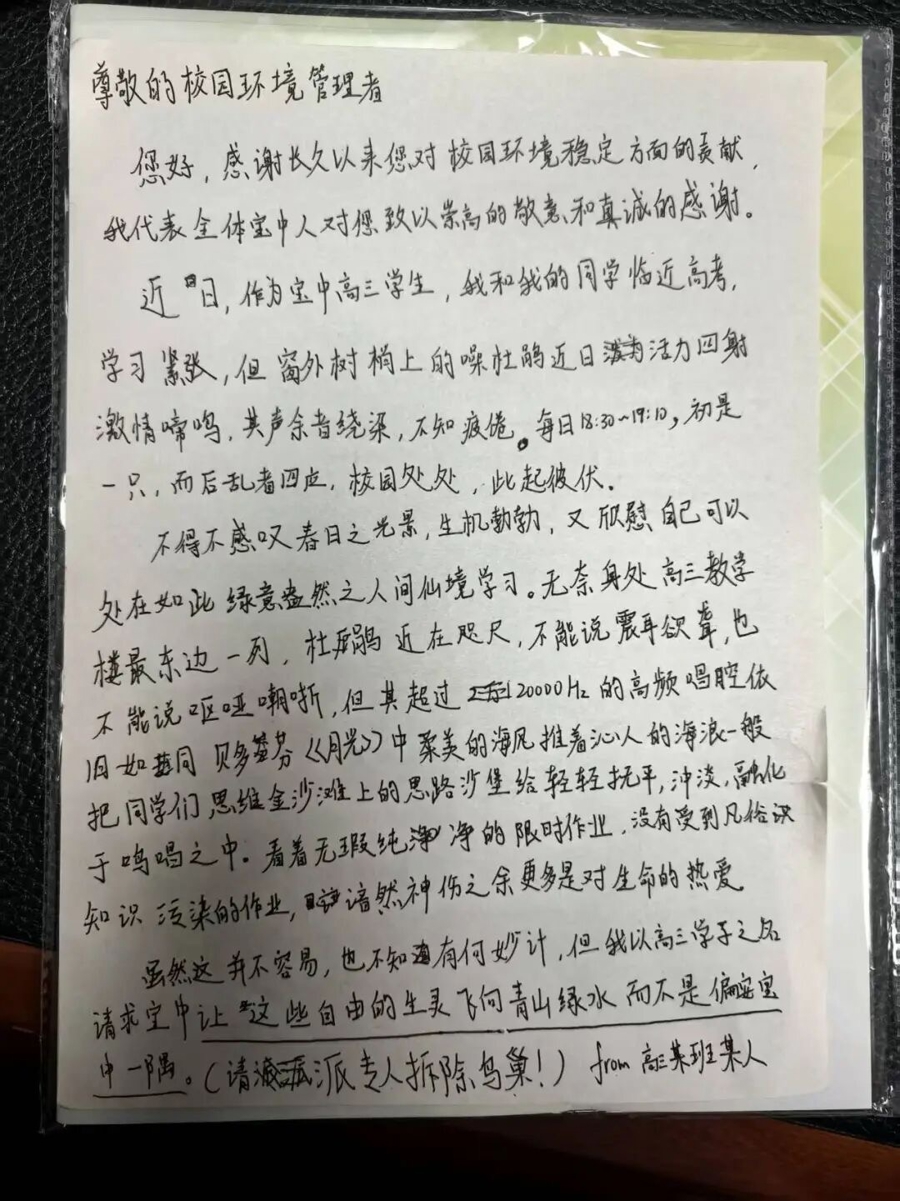 尊敬的校园环境管理者
您好，感谢长久以来您对校园环境稳定方面的贡献，
我代表全体宝中人对您致以崇高的敬意和真诚的感谢。
近日，作为宝中高三学生，我和我的同学临近高考，
学习紧张，但窗外树梢上的噪杜鹃近日活力四射
激情啼鸣，其声余音绕梁，不知疲倦。每日18:30~19:10，初是
一只，而后乱者四应，校园处处，此起彼伏。
不得不感叹春日之光景，生机勃勃，又欣慰自己可以
处在如此绿意盎然之人间仙境学习。无奈身处高三教学
楼最东边一列，杜鹃近在咫尺，不能说震耳欲聋，也
不能说呕哑嘲哳，但其超过20000Hz的高频唱腔依
旧如同贝多芬《月光》中柔美的海风推着沁人的海浪一般
把同学们思维金沙滩上的思路沙堡给轻轻抚平，冲淡，融化
于鸣唱之中。看着无瑕纯净的限时作业，没有受到凡俗
知识污染的作业，谙然神伤之余更多是对生命的热爱
虽然这并不容易，也不知有何妙计，但我以高三学子之名
请求宝中让这些自由的生灵飞向青山绿水而不是偏安宝
中一隅。（请派专人拆除鸟巢！）from高三某班某人